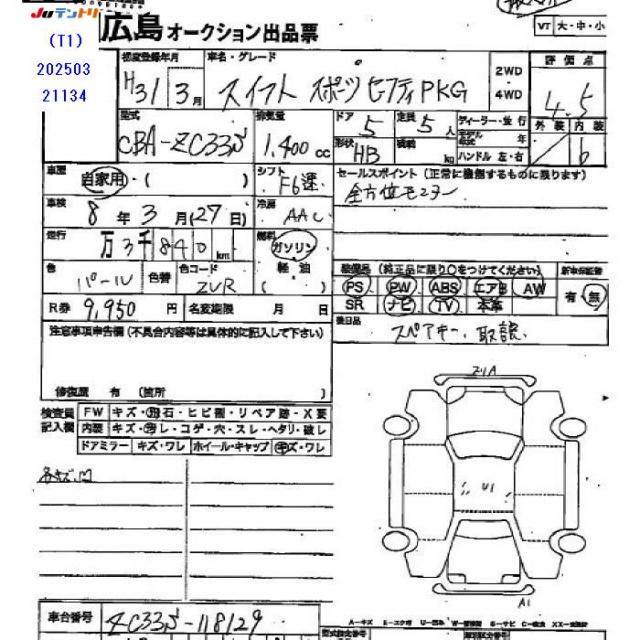 JUテントリ
(T1)
202503
21134
広島オークション出品票
VT 大・中・小
初度登録年月
H31年 3月
車名・グレード
スイフト スポーツ セーフティPKG
2WD
4WD
評価点
4.5
外装 内装
6
型式
CBA-ZC33S
排気量
1,400 cc
ドア 5
形状 HB
定員 5人
積載 kg
ディーラー・並行
モデル年式 年
ハンドル 左・右
車歴
自家用・( )
シフト
F6速
セールスポイント (正常に機能するものに限ります)
全方位モニター
車検
8年 3月(27日)
冷房
AAC
走行
万3千840km
燃料
ガソリン
軽油
( )
色
パール
色替
色コード
ZVR
装備品 (純正品に限り○をつけてください)
新車保証書
PS PW ABS エアB AW
SR ナビ TV 本革
有・無
R券 9,950円
名変期限 月 日
後日品
スペアキー、取説、
注意事項申告欄(不具合内容等は具体的に記入して下さい)
修復歴 有 (箇所 )
検査員記入欄
FW キズ・飛石・ヒビ割・リペア跡・X要
内装 キズ・汚レ・コゲ・穴・スレ・ヘタリ・破レ
ドアミラー キズ・ワレ ホイール・キャップ キズ・ワレ
各キズ、凹
U1
A1
車台番号 ZC33S-118129